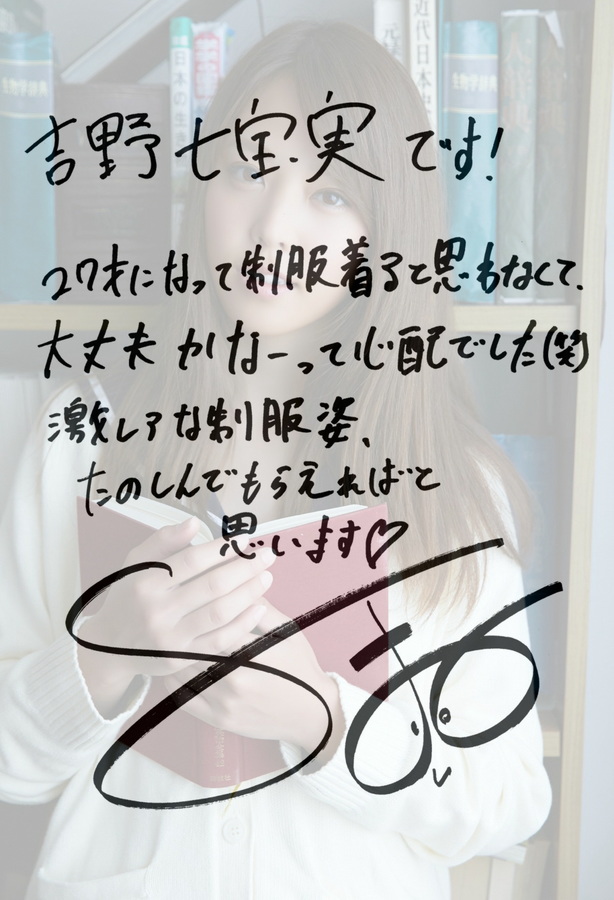 吉野七宝実です!
27才になって制服着ると思もなくて、
大丈夫かなーって心配でした(笑)
激レアな制服姿、
たのしんでもらえればと
思います♡
近代日本
日本の生
生物学辞典